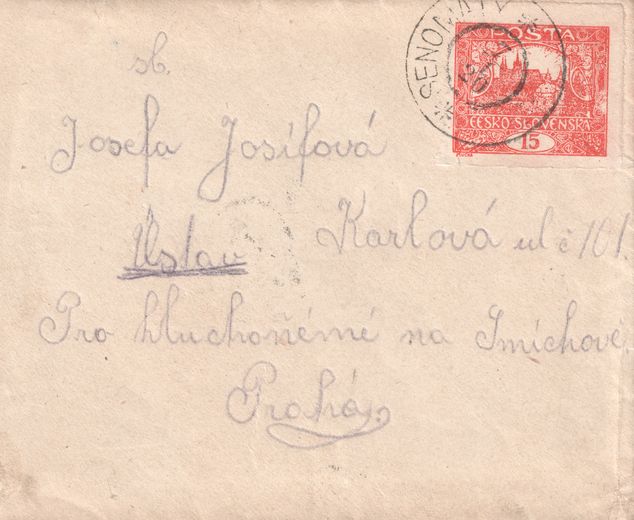 SENOMATY
POŠTA
ČESKO-SLOVENSKÁ
15
sb.
Josefa Josífová
Ústav Karlová ul č 101.
Pro hluchoněmé na Smíchově
Prahá,